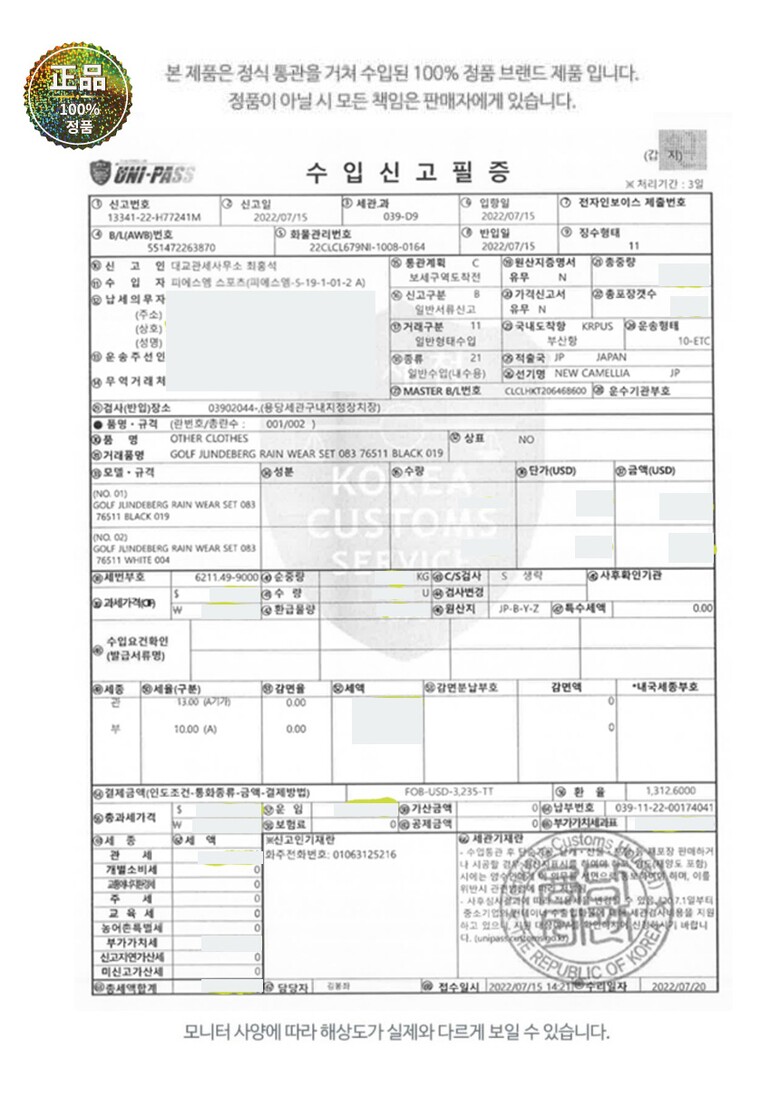 正品
100%
정품
본 제품은 정식 통관을 거쳐 수입된 100% 정품 브랜드 제품 입니다.
정품이 아닐 시 모든 책임은 판매자에게 있습니다.
UNI-PASS
수 입 신 고 필 증
(갑 지)
※ 처리기간 : 3일
① 신고번호
13341-22-H77241M
② 신고일
2022/07/15
③ 세관.과
039-D9
⑥ 입항일
2022/07/15
⑦ 전자인보이스 제출번호
④ B/L(AWB)번호
551472263870
⑤ 화물관리번호
22CLCL679NI-1008-0164
⑧ 반입일
2022/07/15
⑨ 징수형태
11
⑩ 신 고 인 대교관세사무소 최홍석
⑪ 수 입 자 피에스엠 스포츠(피에스엠-5-19-1-01-2 A)
⑫ 납세의무자
(주소)
(상호)
(성명)
⑬ 운송주선인
⑭ 무역거래처
⑮ 통관계획 C
보세구역도착전
원산지증명서
유무 N
총중량
신고구분 B
일반서류신고
가격신고서
유무 N
총포장갯수
거래구분 11
일반형태수입
국내도착항 KRPUS
부산항
운송형태
10-ETC
종류 21
일반수입(내수용)
적출국 JP JAPAN
선기명 NEW CAMELLIA JP
MASTER B/L번호 CLCLHKT206468600
운수기관부호
검사(반입)장소 03902044-,(용당세관구내지정장치장)
● 품명·규격 (란번호/총란수 : 001/002 )
품 명 OTHER CLOTHES
상표 NO
거래품명 GOLF JLINDEBERG RAIN WEAR SET 083 76511 BLACK 019
모델·규격
성분
수량
단가(USD)
금액(USD)
(NO. 01)
GOLF JLINDEBERG RAIN WEAR SET 083
76511 BLACK 019
(NO. 02)
GOLF JLINDEBERG RAIN WEAR SET 083
76511 WHITE 004
KOREA
CUSTOMS
SERVICE
세번부호 6211.49-9000
순중량 KG
C/S검사 S 생략
사후확인기관
과세가격(CIF)
$
₩
수 량 U
검사변경
환급물량
원산지 JP-B-Y-Z
특수세액 0.00
수입요건확인
(발급서류명)
세종
세율(구분)
감면율
세액
감면분납부호
감면액
*내국세종부호
관 13.00 (A기가) 0.00 0
부 10.00 (A) 0.00 0
결제금액(인도조건-통화종류-금액-결제방법)
FOB-USD-3,235-TT
환 율 1,312.6000
총과세가격
$
₩
운 임
보험료 0
가산금액 0
공제금액 0
납부번호 039-11-22-00174041
부가가치세과표
세 종
세 액
관 세
개별소비세 0
교통에너지환경세 0
주 세 0
교 육 세 0
농어촌특별세 0
부가가치세
신고지연가산세 0
미신고가산세 0
총세액합계
※신고인기재란
화주전화번호: 01063125216
세관기재란
THE REPUBLIC OF KOREA
담당자 김봉좌
접수일시 2022/07/15 14:21
수리일자 2022/07/20
모니터 사양에 따라 해상도가 실제와 다르게 보일 수 있습니다.